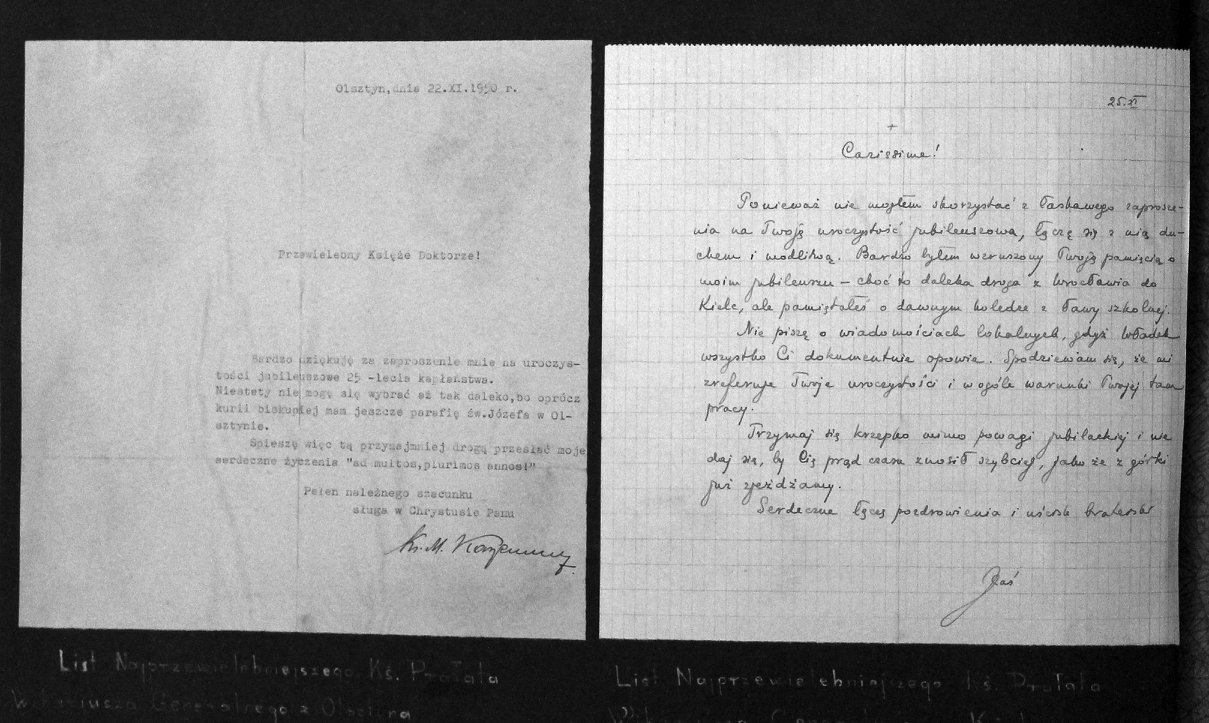 Olsztyn,dnia 22.XI.1950 r.
Przewielebny Księże Doktorze!
Bardzo dziękuję za zaproszenie mnie na uroczys-
tości jubileuszowe 25 -lecia kapłaństwa.
Niestety nie mogę się wybrać aż tak daleko,bo oprócz
kurii biskupiej mam jeszcze parafię św.Józefa w Ol-
sztynie.
Spieszę więc tą przynajmniej drogą przesłać moje
serdeczne życzenia "ad multos,plurimos annos!"
Pełen należnego szacunku
sługa w Chrystusie Panu
Ks. M.
25.XI
+
Carissime!
Ponieważ nie mogłem skorzystać z łaskawego zaprosze-
nia na Twoją uroczystość jubileuszową, łączę się z nią du-
chem i modlitwą. Bardzo byłem wzruszony Twoją pamięcią o
moim jubileuszu – choć to daleka droga z Wrocławia do
Kielc, ale pamiętałeś o dawnym koledze z ławy szkolnej.
Nie piszę o wiadomościach lokalnych, gdyż Władek
wszystko Ci dokumentnie opowie. Spodziewam się, że mi
zreferuje Twoje uroczystości i wogóle warunki Twojej tam
pracy.
Trzymaj się krzepko mimo powagi jubilackiej i nie
daj się, by Cię prąd czasu znosił szybciej, jako że z górki
już zjeżdżamy.
Serdeczne łączę pozdrowienia i uścisk braterski
Jaś
List Najprzewielebniejszego Ks. Prałata
Wikariusza Generalnego z Olsztyna
List Najprzewielebniejszego Ks. Prałata